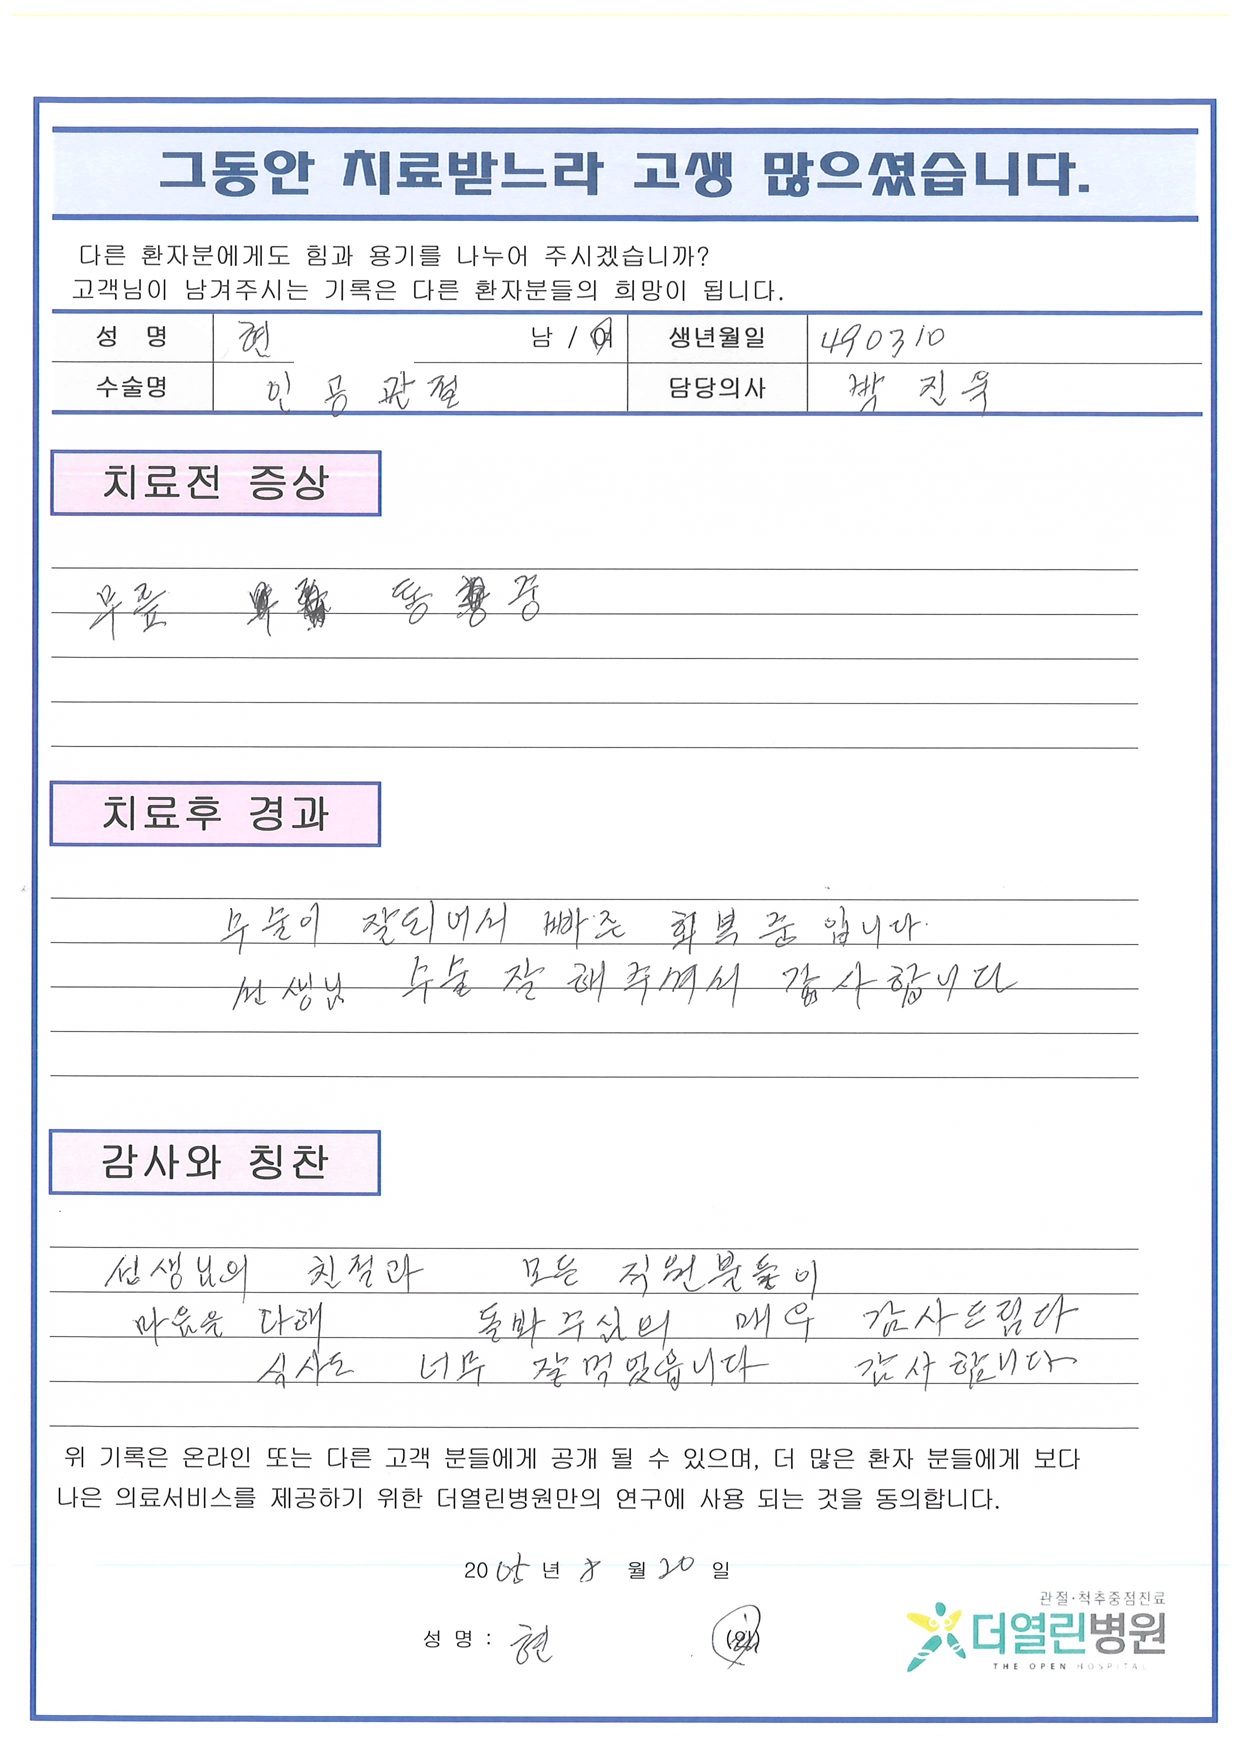 그동안 치료받느라 고생 많으셨습니다.
다른 환자분에게도 힘과 용기를 나누어 주시겠습니까?
고객님이 남겨주시는 기록은 다른 환자분들의 희망이 됩니다.
성 명 현 남 / 여 생년월일 490310
수술명 인공관절 담당의사 박진욱
치료전 증상
무릎 통증
치료후 경과
수술이 잘되어서 빠른 회복 중입니다.
선생님 수술 잘 해주셔서 감사합니다
감사와 칭찬
선생님의 친절과 모든 직원분들이
마음을 다해 돌봐주심의 매우 감사드림다
식사도 너무 잘먹었읍니다 감사합니다
위 기록은 온라인 또는 다른 고객 분들에게 공개 될 수 있으며, 더 많은 환자 분들에게 보다
나은 의료서비스를 제공하기 위한 더열린병원만의 연구에 사용 되는 것을 동의합니다.
20 년 8 월 20 일
성 명 : 현 (인)
관절·척추중점진료
더열린병원
THE OPEN HOSPITAL